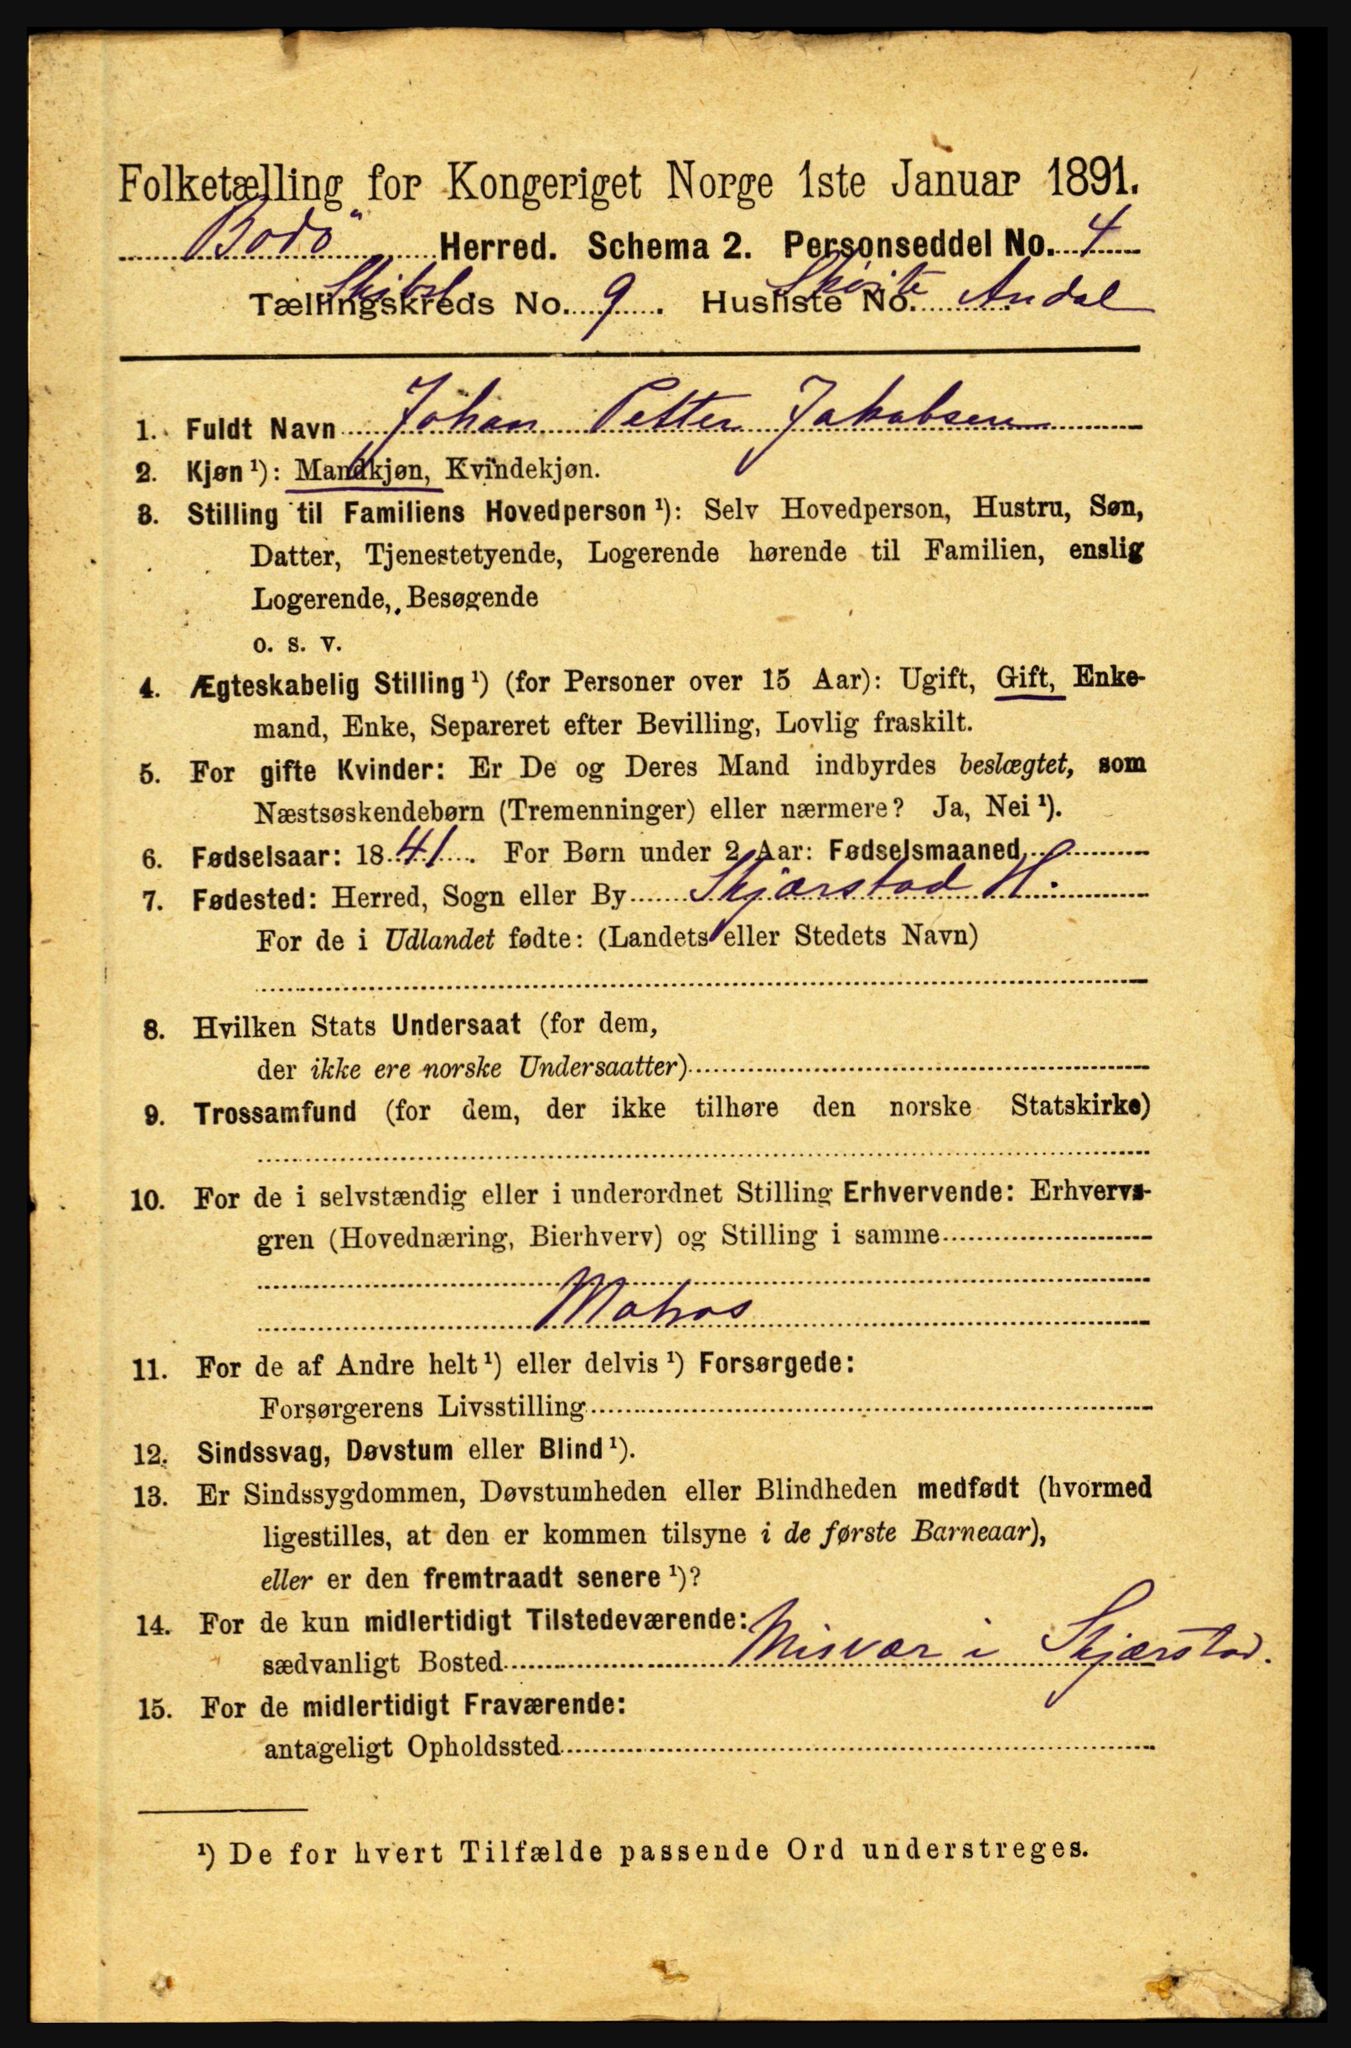 Folketælling for Kongeriget Norge 1ste Januar 1891.
Bodö Herred. Schema 2. Personseddel No. 4
Tællingskreds No. 9. Husliste No. Andal
1. Fuldt Navn Johan Petter Jakobsen
2. Kjøn ¹): Mandkjøn, Kvindekjøn.
3. Stilling til Familiens Hovedperson ¹): Selv Hovedperson, Hustru, Søn,
Datter, Tjenestetyende, Logerende hørende til Familien, enslig
Logerende, Besøgende
o. s. v.
4. Ægteskabelig Stilling ¹) (for Personer over 15 Aar): Ugift, Gift, Enke-
mand, Enke, Separeret efter Bevilling, Lovlig fraskilt.
5. For gifte Kvinder: Er De og Deres Mand indbyrdes beslægtet, som
Næstsøskendebørn (Tremenninger) eller nærmere? Ja, Nei ¹).
6. Fødselsaar: 1841. For Børn under 2 Aar: Fødselsmaaned
7. Fødested: Herred, Sogn eller By Skjærstad H.
For de i Udlandet fødte: (Landets eller Stedets Navn)
8. Hvilken Stats Undersaat (for dem,
der ikke ere norske Undersaatter)
9. Trossamfund (for dem, der ikke tilhøre den norske Statskirke)
10. For de i selvstændig eller i underordnet Stilling Erhvervende: Erhvervs-
gren (Hovednæring, Bierhverv) og Stilling i samme
Matros
11. For de af Andre helt ¹) eller delvis ¹) Forsørgede:
Forsørgerens Livsstilling
12. Sindssvag, Døvstum eller Blind ¹).
13. Er Sindssygdommen, Døvstumheden eller Blindheden medfødt (hvormed
ligestilles, at den er kommen tilsyne i de første Barneaar),
eller er den fremtraadt senere ¹)?
14. For de kun midlertidigt Tilstedeværende:
sædvanligt Bosted Misvær i Skjærstad.
15. For de midlertidigt Fraværende:
antageligt Opholdssted
¹) De for hvert Tilfælde passende Ord understreges.